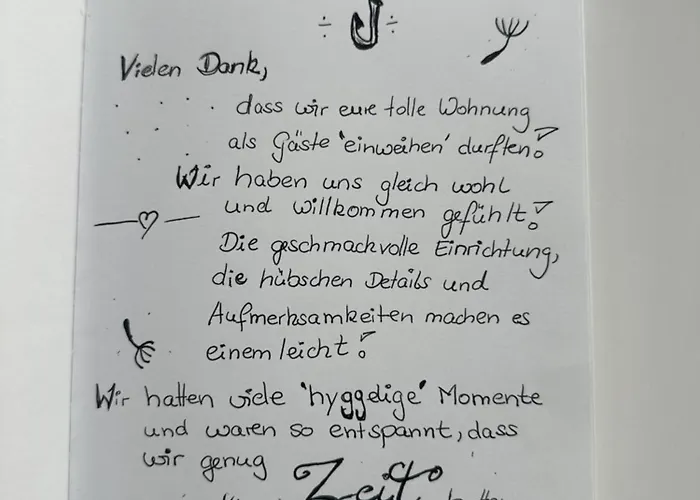 Vielen Dank,
dass wir eure tolle Wohnung
als Gäste 'einweihen' durften!
Wir haben uns gleich wohl
und willkommen gefühlt!
Die geschmackvolle Einrichtung,
die hübschen Details und
Aufmerksamkeiten machen es
einem leicht!
Wir hatten viele 'hyggelige' Momente
und waren so entspannt, dass
wir genug Zeit